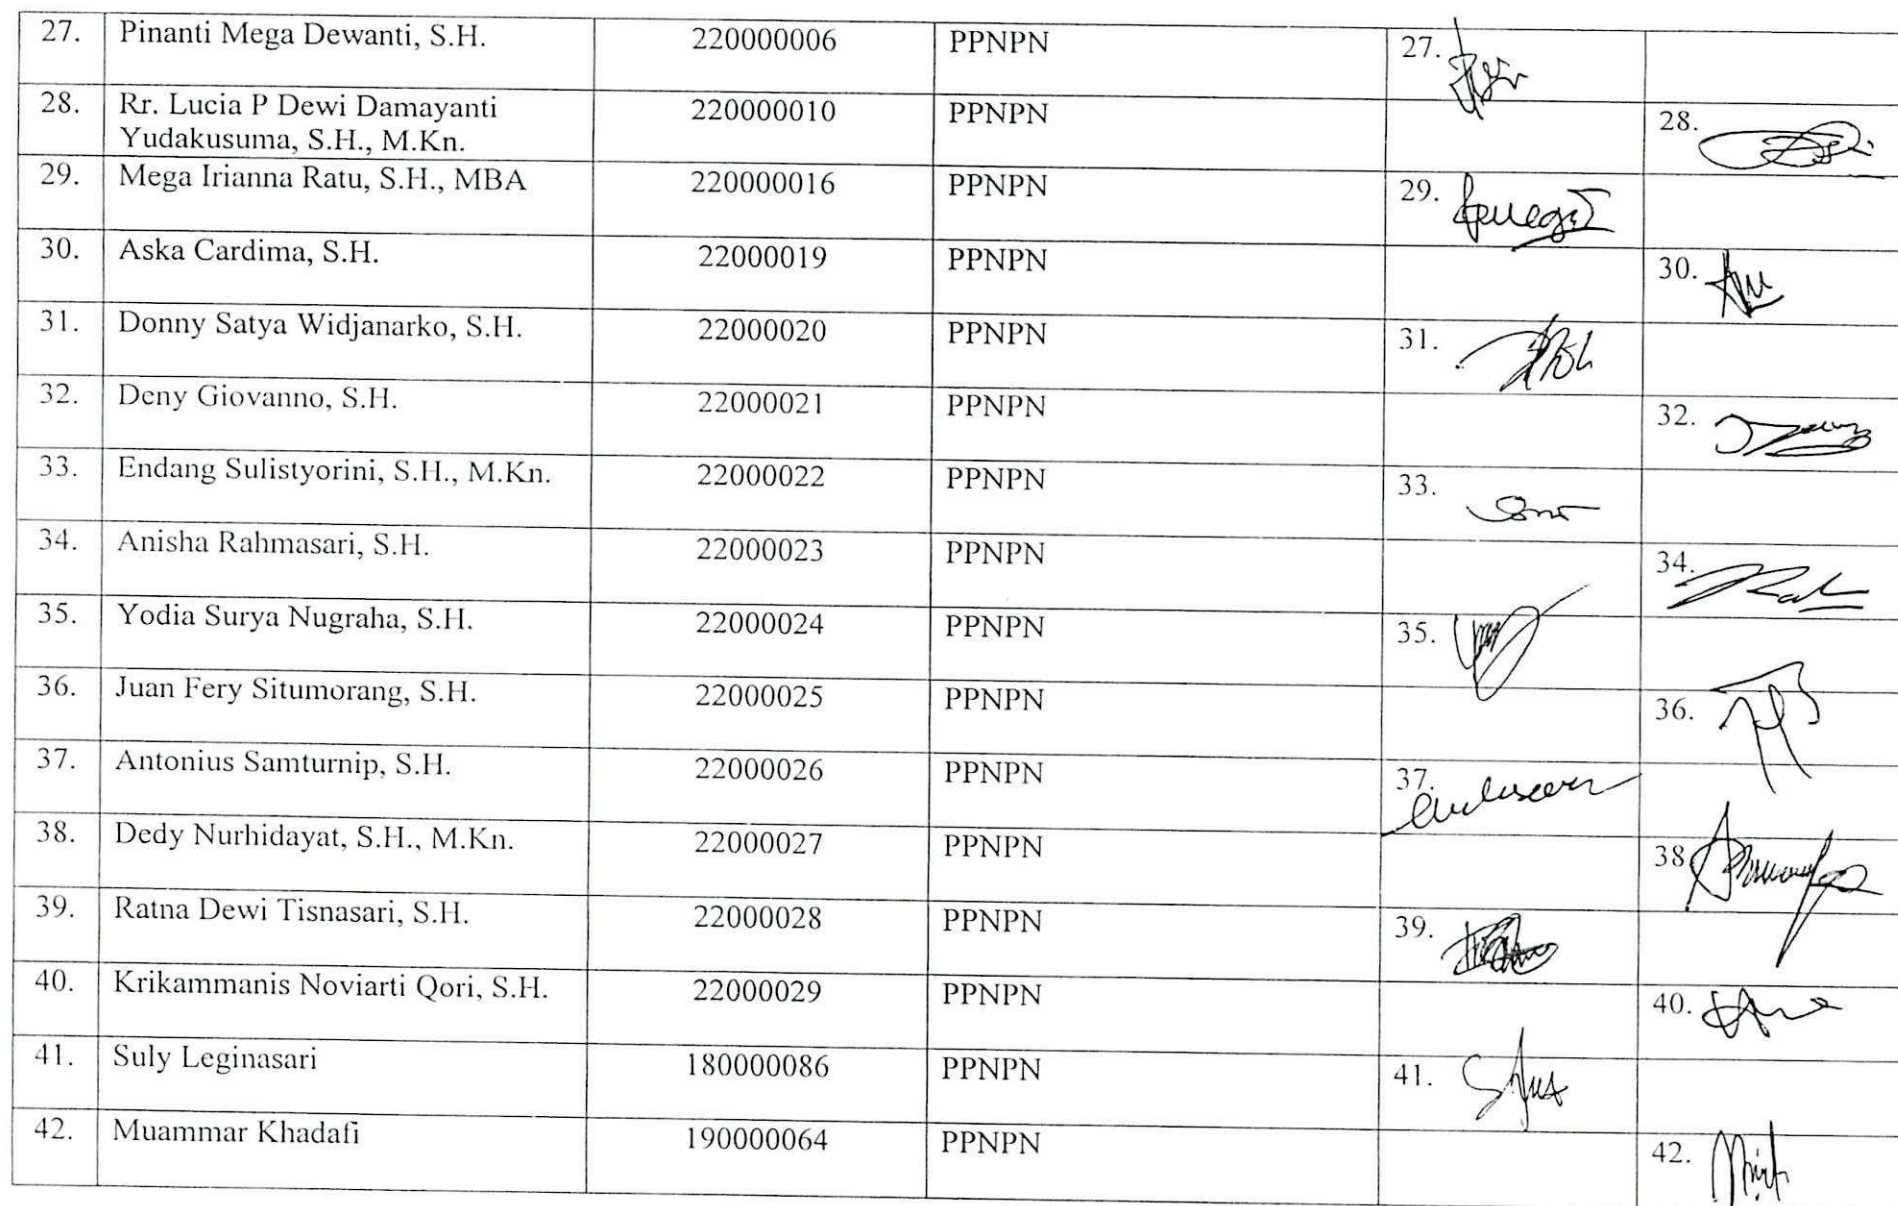 27. Pinanti Mega Dewanti, S.H. 220000006 PPNPN 27.
28. Rr. Lucia P Dewi Damayanti 220000010 PPNPN 28.
Yudakusuma, S.H., M.Kn.
29. Mega Irianna Ratu, S.H., MBA 220000016 PPNPN 29.
30. Aska Cardima, S.H. 22000019 PPNPN 30.
31. Donny Satya Widjanarko, S.H. 22000020 PPNPN 31.
32. Deny Giovanno, S.H. 22000021 PPNPN 32.
33. Endang Sulistyorini, S.H., M.Kn. 22000022 PPNPN 33.
34. Anisha Rahmasari, S.H. 22000023 PPNPN 34.
35. Yodia Surya Nugraha, S.H. 22000024 PPNPN 35.
36. Juan Fery Situmorang, S.H. 22000025 PPNPN 36.
37. Antonius Samturnip, S.H. 22000026 PPNPN 37.
38. Dedy Nurhidayat, S.H., M.Kn. 22000027 PPNPN 38
39. Ratna Dewi Tisnasari, S.H. 22000028 PPNPN 39.
40. Krikammanis Noviarti Qori, S.H. 22000029 PPNPN 40.
41. Suly Leginasari 180000086 PPNPN 41.
42. Muammar Khadafi 190000064 PPNPN 42.